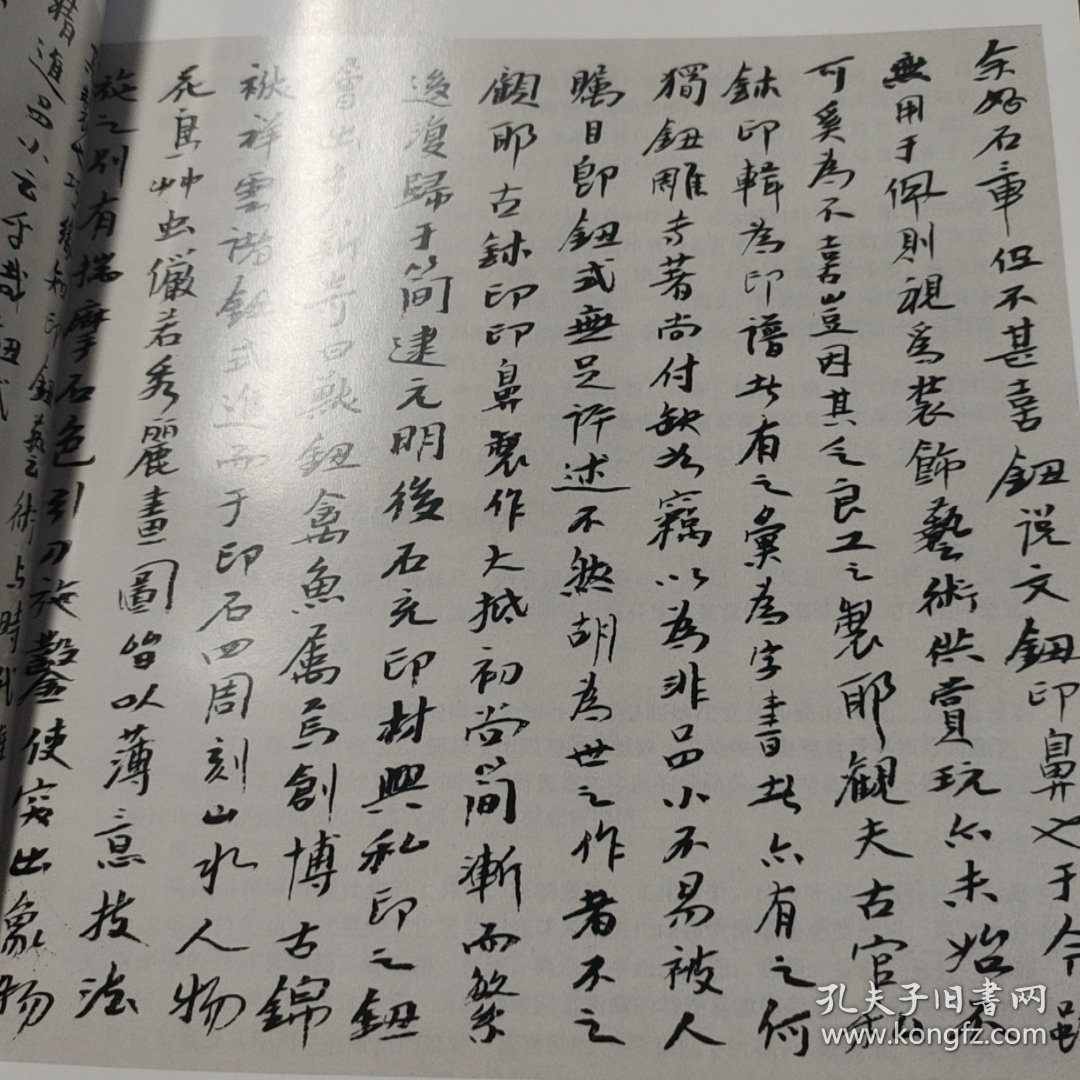 余好石章但不甚喜鈕说文鈕印鼻也于今雖
無用于佩則視為裝飾藝術供賞玩亦未始不
可奚為不喜豈因其乏良工之製耶觀夫古官私
鉢印輯為印譜者有之彙為字書者亦有之何
獨鈕雕专著尚付缺如竊以為非品小不易被人
矚目即鈕式無足評述不然胡為世之作者不之
顧耶古鉢印印鼻製作大抵初尚簡漸而繁
後復歸于簡逮元明後石充印材興私印之鈕
層出 曰獸鈕禽魚屬焉創博古錦
袱祥雲諸鈕式進而于印石四周刻山水人物
花鳥艸虫儼若秀麗畫圖皆以薄意技法
施之別有揣摩石色引刀施鑿使突出象物
精進
鈕藝之術与時
孔夫子旧书网
www.kongfz.com